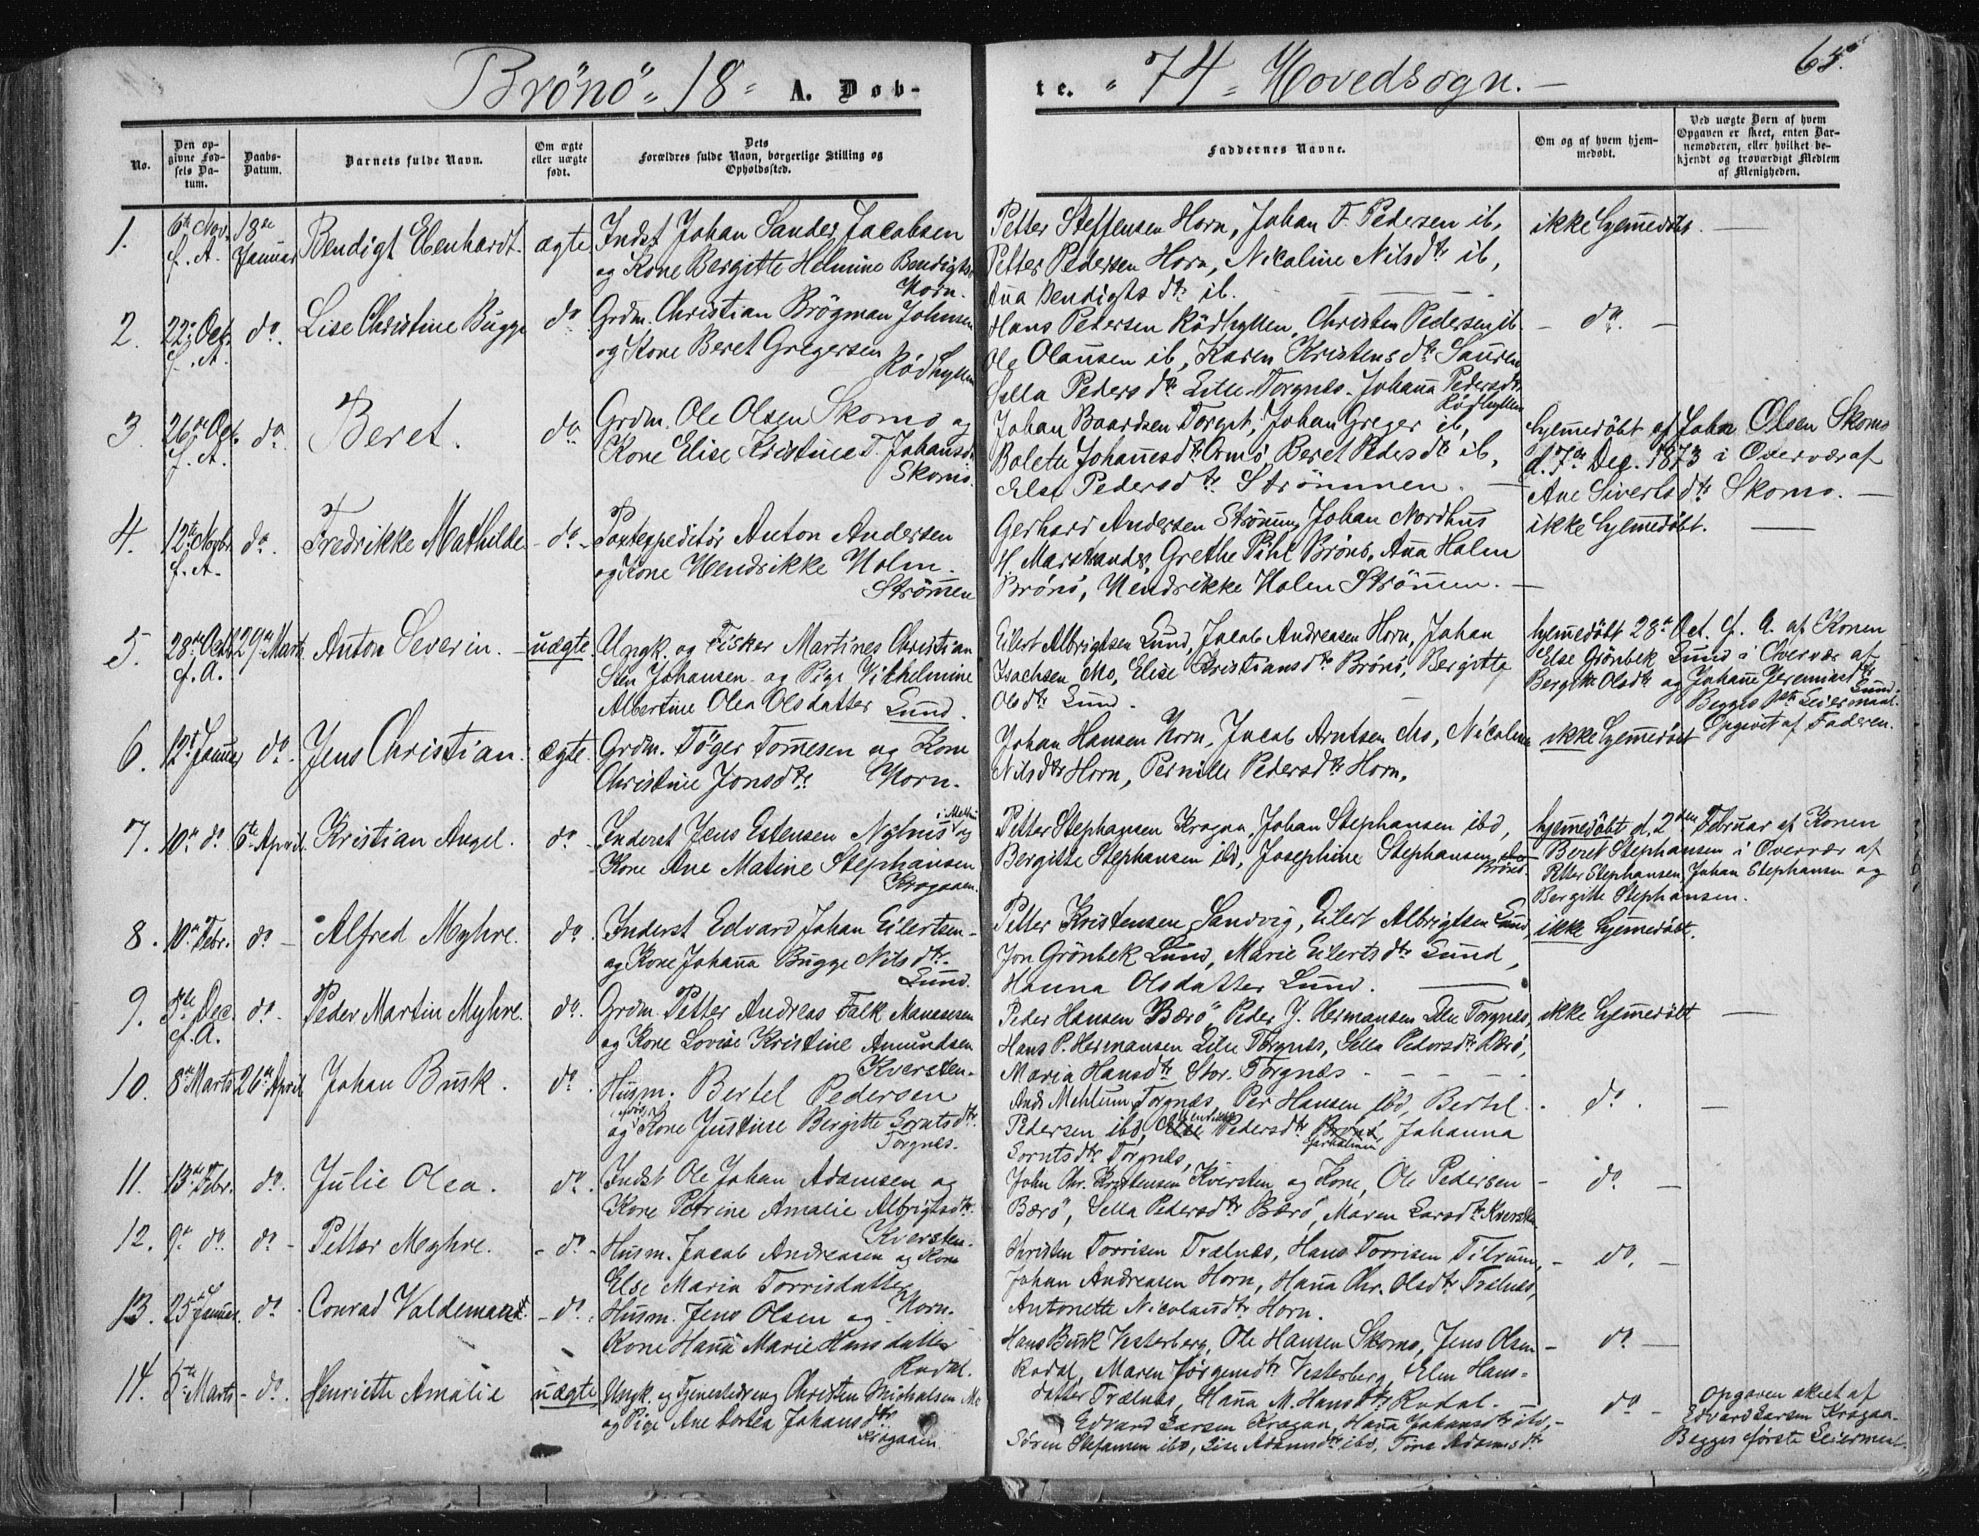 Brönö 18 A. Døb-
te. 74 Hovedsogn.
65.
No.
Den opgivne Fødsels Datum.
Daabs-Datum.
Barnets fulde Navn.
Om ægte eller uægte født.
Dets Forældres fulde Navn, borgerlige Stilling og Opholdssted.
Faddernes Navne.
Om og af hvem hjemmedøbt.
Ved uægte Børn af hvem Opgaven er skeet, enten Barnemoderen, eller hvilket bekjendt og troværdigt Medlem af Menigheden.
1. 6te Nov. f. A. 18de Januar Bendigt Ebenhardt. ægte
Indst Johan Sander Jacobsen
og Kone Bergitte Helmine Bendigts
Horn.
Petter Steffensen Horn, Johan F. Pedersen ib,
Petter Pedersen Horn, Nicoline Nilsdtr ib,
Ana Bendigtsdtr ib.
ikke hjemedøbt.
2. 22. Oct. f. A. do. Lise Christine Bugge do
Grdm. Christian Brögman Johnsen
og Kone Beret Gregersen
Rödhyllen
Hans Pedersen Rödhyllen, Christen Pedersen ib
Ole Olausen ib, Karen Kristensdtr Sauren
Sella Pedersdtr Lille-Torgnes. Johana Pedersdtr
Rödhyllen
do.
3. 26de Oct. f. A. do. Beret. do.
Grdm. Ole Olsen Skomo og
Kone Elise Kristine T. Johansd.
Skomo.
Johan Baardsen Torget, Johan Greger ib,
Bolette Johanesdtr Ormö Beret Pedersdtr ib,
Else Pedersdtr Strömmen.
hjemedöbt af John Olsen Skomo
d. 7de Dec. 1873 i Overvær af
Ane Sivertsdtr Skomo.
4. 12te Novbr. f. A. do. Fredrikke Mathilde do.
Postexpeditör Anton Andersen
og Kone Hendrikke Holm.
Strömen
Gerhard Andersen Strömen, Johan Nordhus
H. Marstrander, Grethe Pihl Brönö, Ana Holm
Brönö, Hendrikke Holm Strömen.
ikke hjemedöbt.
5. 28de Octb. f. A. 29de Marts Anton Severin. uægte.
Ungk. og Fisker Martines Christian
Sten Johansen og Pige Vilhelmine
Albertine Olea Olsdatter Lund.
Eilert Albrigtsen Lund, Jacob Andreasen Horn, Johan
Isachsen Mo, Elise Kristiansdtr Brönö, Bergitte
Olsdtr Lund.
hjemedöbt 28de Oct. f. A. af Konen
Else Grönbek Lund i Overvær af
Bergitte Olsdtr og Johane Jeremiasdtr
Lund.
Begges 1ste Leiermaal.
Opgivet af Faderen.
6. 12te Januar do. Jens Christian. ægte.
Grdm. Töger Tomesen og Kone
Christine Jonsdtr. Horn.
Johan Hansen Horn, Jacob Arntsen Mo, Nicoline
Nilsdtr Horn, Pernille Pedersdtr Horn.
ikke hjemedöbt
7. 10de do 6te April. Kristian Angel. do.
Inderst Jens Estensen Nylnis og
Kone Ane Matine Stephansen
Kragaaen.
Petter Stephansen Kragaa, Johan Stephansen ibd,
Bergitte Stephansen ibd, Josephine Stephansen
Brönö.
hjemedöbt d. 2den Februar af Konen
Beret Stephansen i Overvær af
Petter Stephansen, Johan Stephansen og
Bergitte Stephansen.
8. 10de Febr. do Alfred Myhre. do.
Inderst Edvard Johan Eilertsen
og Kone Johana Bugge Nilsdtr.
Lund.
Petter Kristensen Sandvig, Eilert Albrigtsen Lund,
Jon Grönbek Lund, Marie Eilertsdtr Lund,
Hanna Olsdatter Lund.
ikke hjemedöbt.
9. Dec. f. A. do. Peder Martin Myhre. do.
Grdm. Petter Andreas Falk Manesesen
og Kone Lovise Kristine Amundsen
Kversten.
Peder Hansen Bærö, Peder J. Hermansen Lille Torgnes,
Hans P. Hermansen Lille Torgnes, Sella Pedersdtr Bærö,
Maria Hansdtr. Stor. Torgnes.
ikke hjemedöbt
10. 8de Marts 26de April Johan Busk. do.
Husm. Bertel Pedersen
og Kone Justine Bergitte Serntsdtr.
Torgnes.
Ands Mehlum Torgnes, Per Hansen ibd, Bertel
Pedersen ibd, Pedersdtr Brönö, Johanna
Serntsdtr Torgnes,
do.
11. 13de Febr. do. Julie Olea. do.
Indst Ole Johan Adamsen og
Kone Petrine Amalie Albrigtsdtr.
Kversten.
John Chr. Kristensen Kversten og Kone, Ole Pedersen
Bærö, Sella Pedersdtr Bærö, Maren Larsdtr Kversten
do.
12. 9de do. do. Petter Myhre. do.
Husm. Jacob Andreasen og Kone
Else Maria Torrisdatter
Horn.
Kristen Torrisen Trælnes, Hans Torrisen Tilrum,
Johan Andreasen Horn, Hana Chr. Olsdtr Trælnes,
Antonette Nicolaisdtr Horn.
do.
13. 25de Januar. do. Conrad Valdemar do.
Husm. Jens Olsen og
Kone Hana Marie Hansdatter
Rodal.
Hans Busk Vesterberg, Ole Hansen Skomo, Jens Olsen
Rodal, Maren Jörgensdtr Vesterberg, Elen Hans-
datter Trælnes, Hana M. Hansdtr Rodal.
do
14. 5te Marts do. Henriette Amalie uægte
Ungk. og Tjenestedreng Christen Michalsen Mo
og Pige Ane Dortea Johansdtr
Kragaaen.
Edvard Larsen Kragaa, Hana Johansdtr ibd,
Sören Stefansen ibd, Lise Adamsdtr ibd, Tina Adamsdtr
do
Opgaven skeet af
Edvard Larsen Kragaa.
Begges förste Leiermaal.